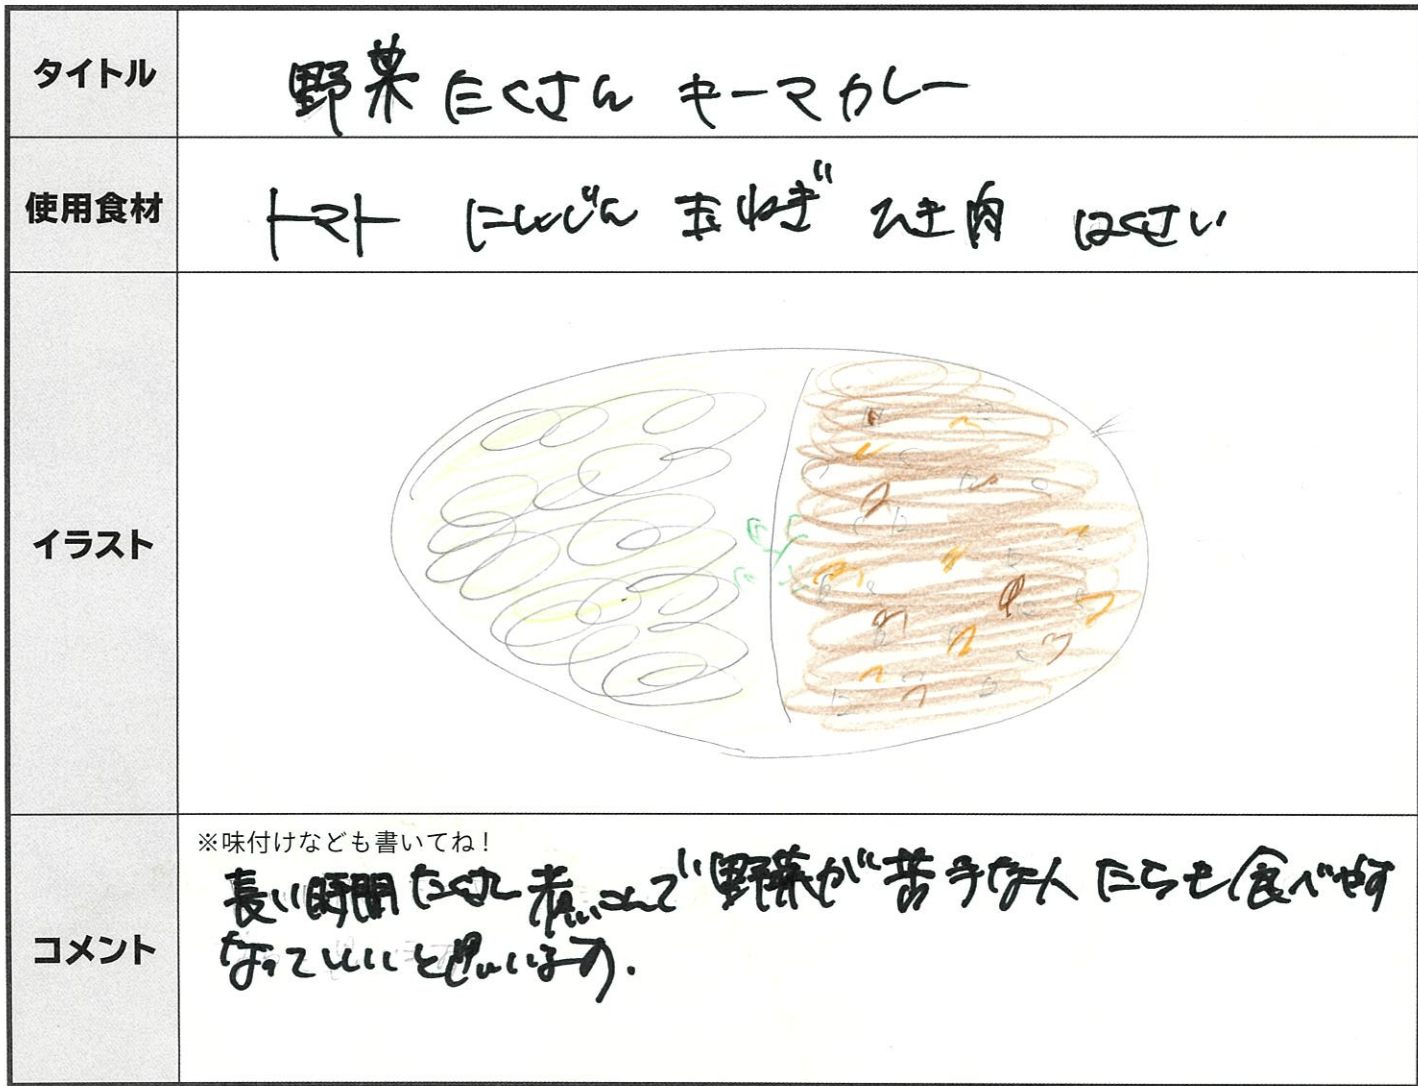 タイトル
野菜たくさん キーマカレー
使用食材
トマト にんじん 玉ねぎ ひき肉 はくさい
イラスト
コメント
※味付けなども書いてね！
長い時間たくさん煮こんで野菜が苦手な人たちも食べやす
なっていいと思います。